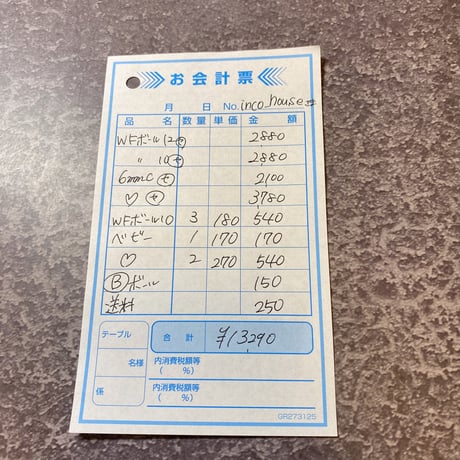 お会計票
月 日 No. inco_house
品 名 数量 単価 金 額
WFボール12 セ 2880
〃 10 セ 2880
6mmC セ 2100
♡ セ 3780
WFボール10 3 180 540
ベゼー 1 170 170
♡ 2 270 540
Ⓑボール 150
送料 250
テーブル 合 計 ¥13290
名様 内消費税額等
( %)
係 内消費税額等
( %)
GR273125